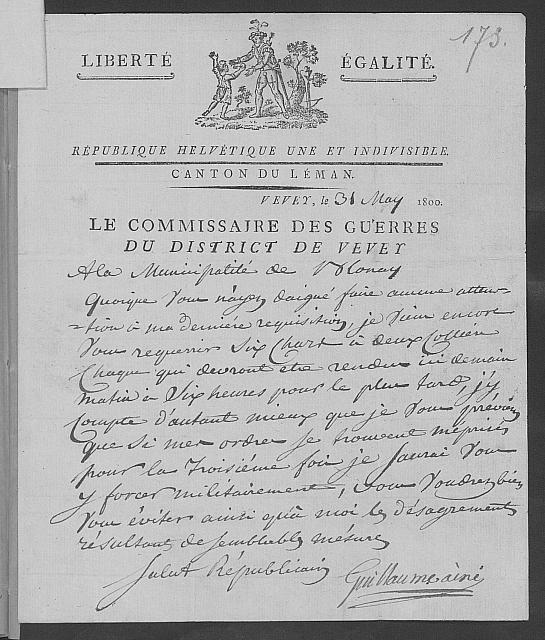 173.
LIBERTÉ ÉGALITÉ.
RÉPUBLIQUE HELVÉTIQUE UNE ET INDIVISIBLE.
CANTON DU LÉMAN.
VEVEY, le 31 May 1800.
LE COMMISSAIRE DES GUERRES
DU DISTRICT DE VEVEY
A la Municipalité de Blonay
Quoique Vous n'ayez daigné faire aucune atten-
-tion à ma derniere requisition, je Vien encore
Vous requerrir Six Chars à deux Colliers
Chaque qui devront être rendus ici demain
matin à Six heures pour le plus tard, j'y
Compte d'autant mieux que je Vous préviens
que Si mes ordres Se trouvent méprisés
pour la Troisiéme fois je Saurai Vous
y forcer militairement, Vous Voudrez bien
Vous éviter ainsi qu'à moi le désagrement
résultant de Semblables mésures
Salut Républicain
Guillaume ainé